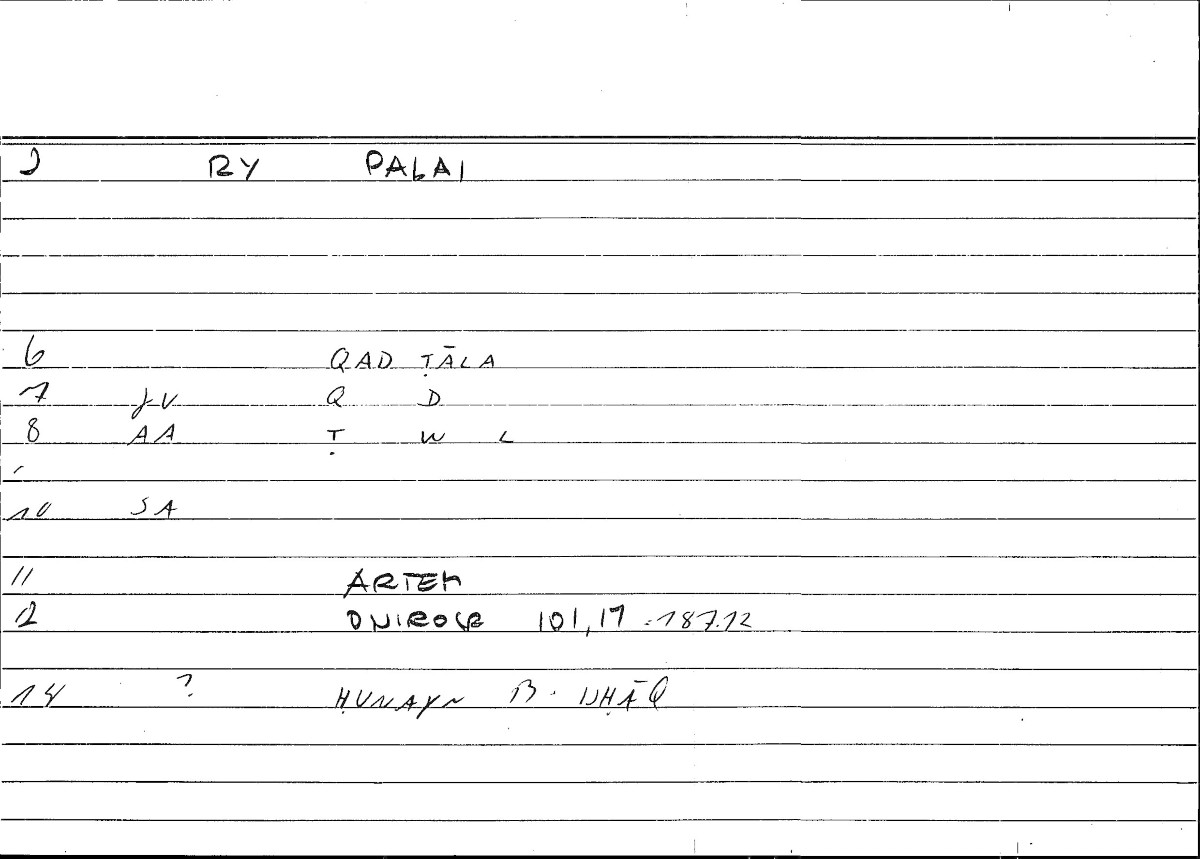 2 RY PALAI
6 QAD ṬĀLA
7 JV Q D
8 AA Ṭ W L
10 SA
11 ARTEM
12 ONIROCR 101,17 = 187.12
14 ? ḤUNAYN B. ISḤĀQ